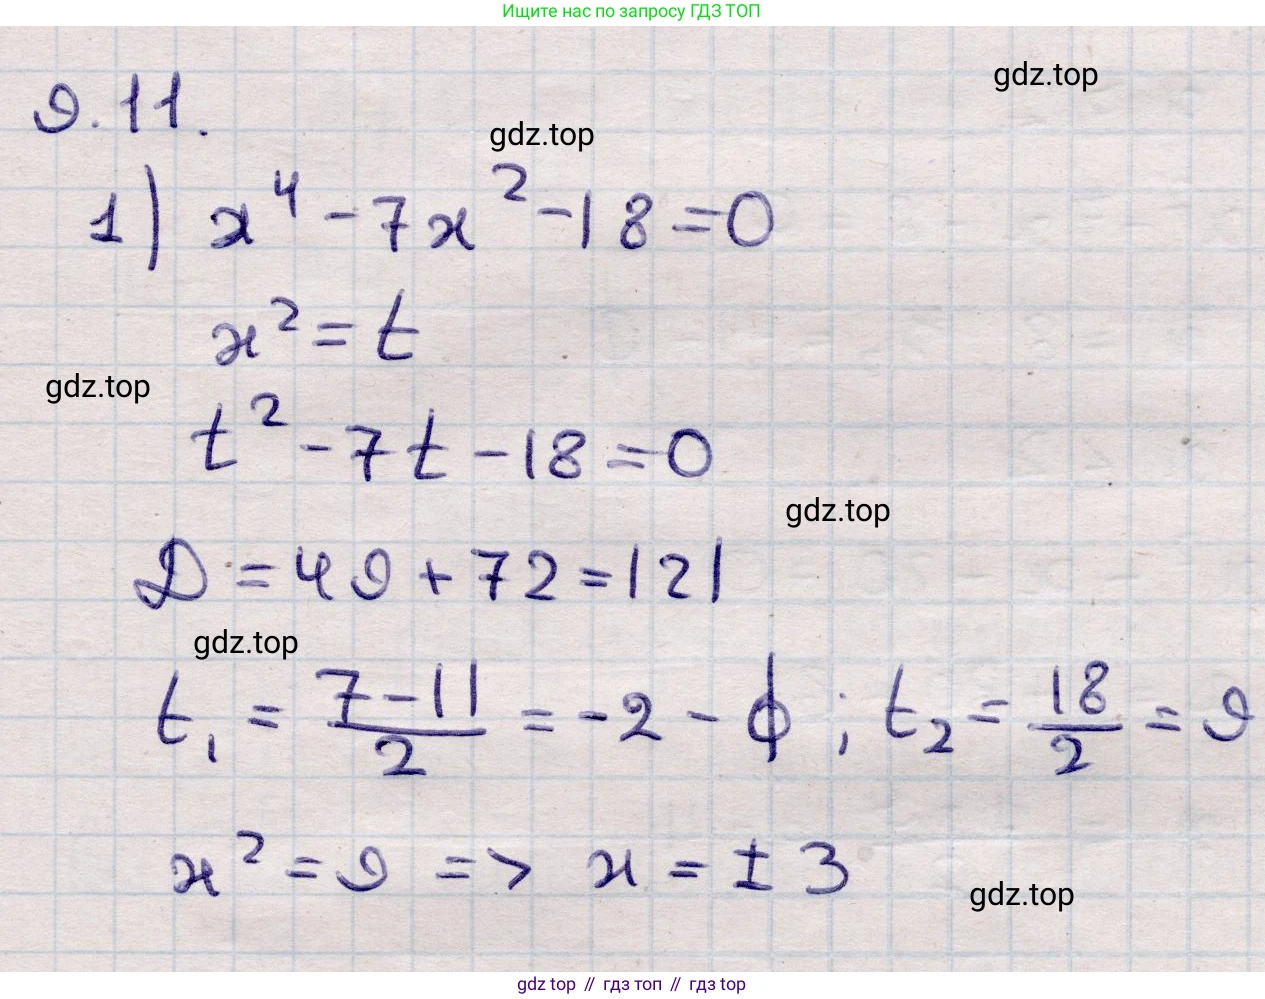 Ищите нас по запросу ГДЗ ТОП
gdz.top
9.11.
gdz.top
1) x⁴ - 7x² - 18 = 0
x² = t
gdz.top
t² - 7t - 18 = 0
gdz.top
D = 49 + 72 = 121
gdz.top
t₁ = (7 - 11)/2 = -2 - ф ; t₂ = 18/2 = 9
x² = 9 => x = ± 3
gdz.top
gdz top // гдз топ // gdz top